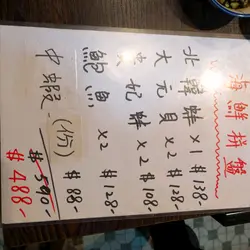 海鮮拼盤
北韓蚌 x1 $138-
大元貝 x2 $128-
皮妃蚌 x2 $108-
鮑魚 x2 $128-
中蝦 (份) $88-
$590-
$488-